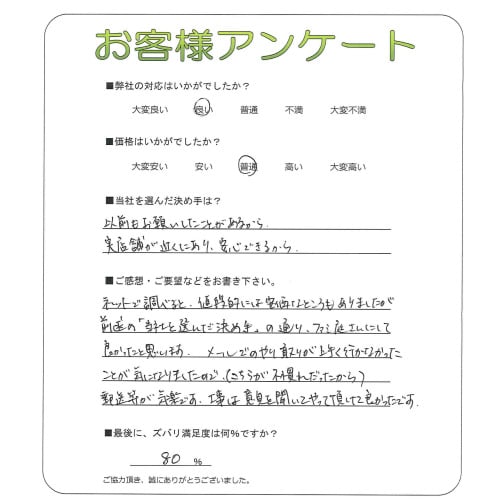 お客様アンケート
■弊社の対応はいかがでしたか？
大変良い 良い 普通 不満 大変不満
■価格はいかがでしたか？
大変安い 安い 普通 高い 大変高い
■当社を選んだ決め手は？
以前もお願いしたことがあるから.
実店舗が近くにあり、安心できるから.
■ご感想・ご要望などをお書き下さい。
ネットで調べると、値段的には安価なところもありましたが
前述の「当社を選んだ決め手」の通り、ファミ庭さんにして
良かったと思います. メールでのやり取りが上手く行かなかった
ことが気になりましたので.(こちらが不慣れだったから)
郵送等が気楽です. 工事は意見を聞いてやって頂けて良かったです.
■最後に、ズバリ満足度は何%ですか？
80 %
ご協力頂き、誠にありがとうございました。